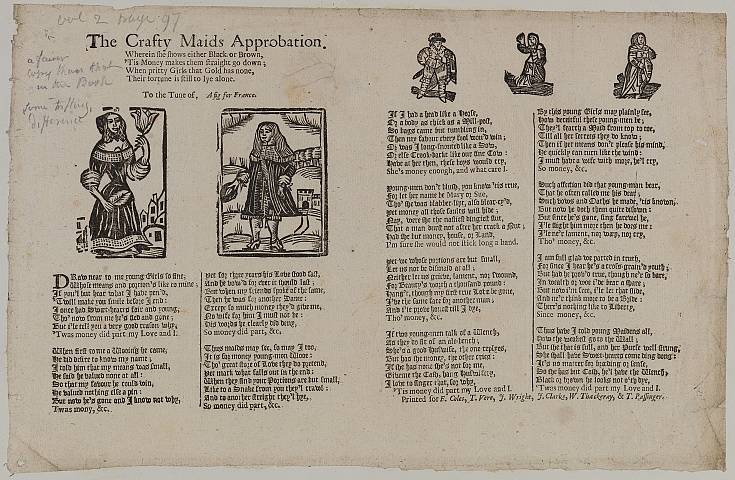 vol 2 page 97
a fairer
copy than that
in the Book
some trifling
difference
The Crafty Maids Approbation.
Wherein she shows either Black or Brown,
'Tis Money makes them straight go down;
When pritty Girls that Gold has none,
Their fortune is still to lye alone.
To the Tune of, A fig for France.
DRaw near to me young Girls so fine,
Whose means and portion's like to mine,
If you'l but hear what I have pen'd,
'Twill make you smile before I end:
I once had Sweet-hearts fair and young,
Tho' now from me he's fled and gone;
But I'le tell you a very good reason why,
'Twas money did part my Love and I.
When first come a Wooing he came,
He did desire to know my name;
I told him that my means was small,
He said he valued none at all:
So that my favour he could win,
He valued nothing else a pin:
But now he's gone and I know not why,
'Twas mony, &c.
yet for three years his Love stood fast,
And he vow'd for ever it should last;
But when my friends spoke of the same,
Then he was for another Dame:
Except so much money they'd give me,
No wife for him I must not be:
His words he clearly did deny,
So money did part, &c.
Thus maids may see, so may I too,
It is for money young-men Wooe:
Tho' great store of Love they do pretend,
yet mark what falls out in the end;
When they find your Portions are but small,
Like to a Snake from you they'l crawl;
And to another straight they'l hye,
So money did part, &c.
If I had a head like a Horse,
Or a body as thick as a Mill-post,
So bags came but tumbling in,
Then my favour every fool wou'd win;
Or was I long-snouted like a Sow,
Or else Crook-backt like our fine Cow:
Have at her then, these boys would cry,
She's money enough, and what care I.
Young-men don't blush, you know 'tis true,
For let her name be Mary or Sue,
Tho' she was blabber-lipt, also blear-ey'd,
yet money all those faults will hide;
Nay, were she the nastiest dingiest slut,
That a man durst not after her crack a Nut;
Had she but money, house, or Land,
I'm sure she would not thick long a hand.
yet we whose portions are but small,
Let us not be dismaid at all;
Neither let us grieve, lament, nor swound,
For Beauty's worth a thousand pound:
Hang't, though my first true Love be gone,
I've the same face for another man;
And I'le prove honest till I dye,
Tho' money, &c.
If two young-men talk of a Wench,
As they do sit of an ale-bench;
She's a good Huswife, the one replyes,
But has she money, the other cries:
If she has none she's not for me,
Give me the Cash, hang Huswifery,
I love to finger that, say why,
'Tis money did part my Love and I.
By this young Girls may plainly see,
How deceitful these young-men be;
They'l search a Maid from top to toe,
Till all her secrets they do know;
Then if her means don't please his mind,
He quickly can turn like the wind:
I must have a wife with more, he'l cry,
So money, &c.
Such affection did that young-man bear,
That he often called me his dear;
Such Vows and Oaths he made, 'tis known,
But now he doth them quite disown:
But since he's gone, sing farewel he,
I'le slight him more then he does me:
I'le ne'r lament, nor warp, nor cry,
Tho' money, &c.
I am full glad we parted in truth,
For since I hear he's a cross-grain'd youth;
But had he prov'd true, though ne'r so bare,
In wealth or woe I'de bear a share;
But now I'm free, I'le let that slide,
And ne'r think more to be a Bride:
There's nothing like to Liberty,
Since money, &c.
Thus have I told young Maidens all,
How the weakest goes to the Wall;
But she that is full, and her Purse well strung,
She shall have Sweet-hearts come ding dong:
It's no matter for breeding or sense,
So she has but Cash, he'l have the Wench;
Black or brown he looks not o'th dye,
'Twas money did part my Love and I.
Printed for F. Coles, T. Vere, J. Wright, J. Clarke, W. Thackeray, & T. Passinger.